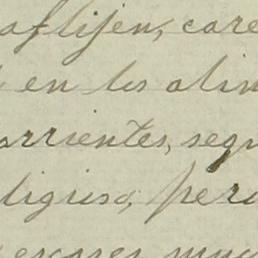 aflijen, care
en los alim
rrientes, segu
ligioso, pero